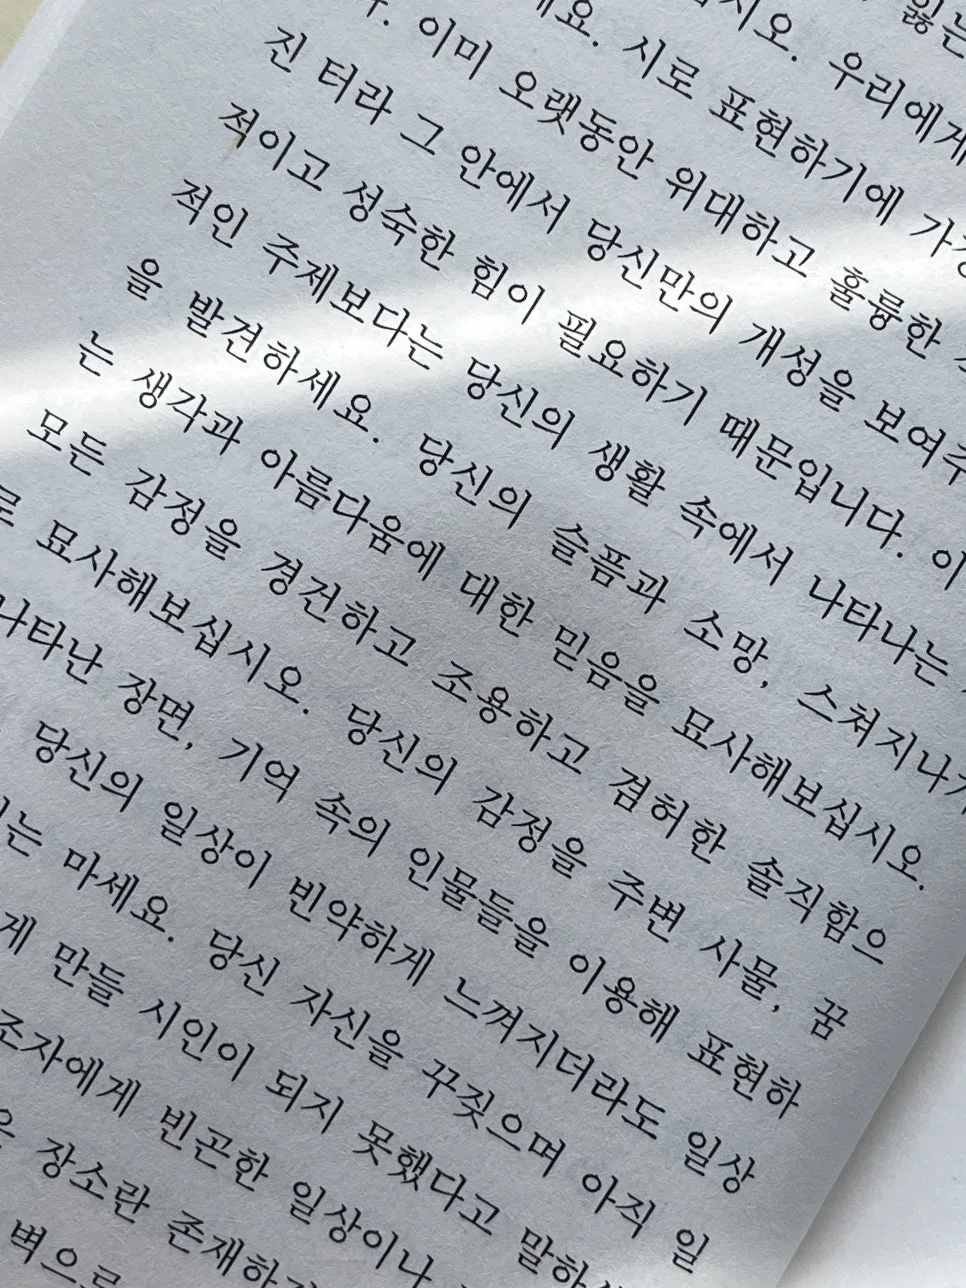 잃는
십시오. 우리에게
요. 시로 표현하기에 가장
이미 오랫동안 위대하고 훌륭한
진 터라 그 안에서 당신만의 개성을 보여주
적이고 성숙한 힘이 필요하기 때문입니다. 이
적인 주제보다는 당신의 생활 속에서 나타나는
을 발견하세요. 당신의 슬픔과 소망, 스쳐지나가
는 생각과 아름다움에 대한 믿음을 묘사해보십시오.
모든 감정을 경건하고 조용하고 겸허한 솔직함으
로 묘사해보십시오. 당신의 감정을 주변 사물, 꿈
나타난 장면, 기억 속의 인물들을 이용해 표현하
당신의 일상이 빈약하게 느껴지더라도 일상
는 마세요. 당신 자신을 꾸짖으며 아직 일
게 만들 시인이 되지 못했다고 말하
조자에게 빈곤한 일상이나
장소란 존재하
벽으로